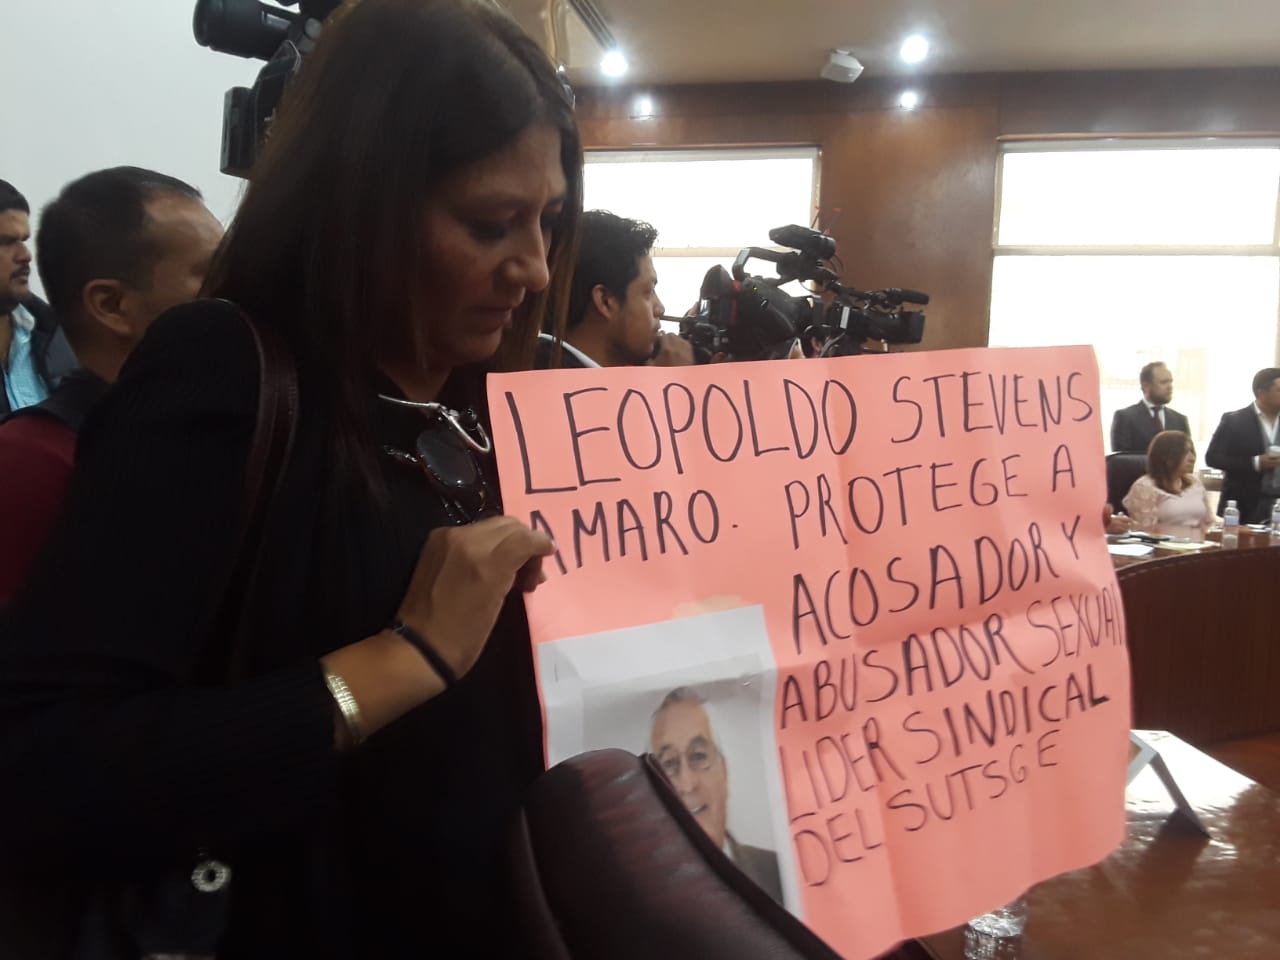 LEOPOLDO STEVENS
AMARO. PROTEGE A
ACOSADOR Y
ABUSADOR SEXUAL
LIDER SINDICAL
DEL SUTSGE